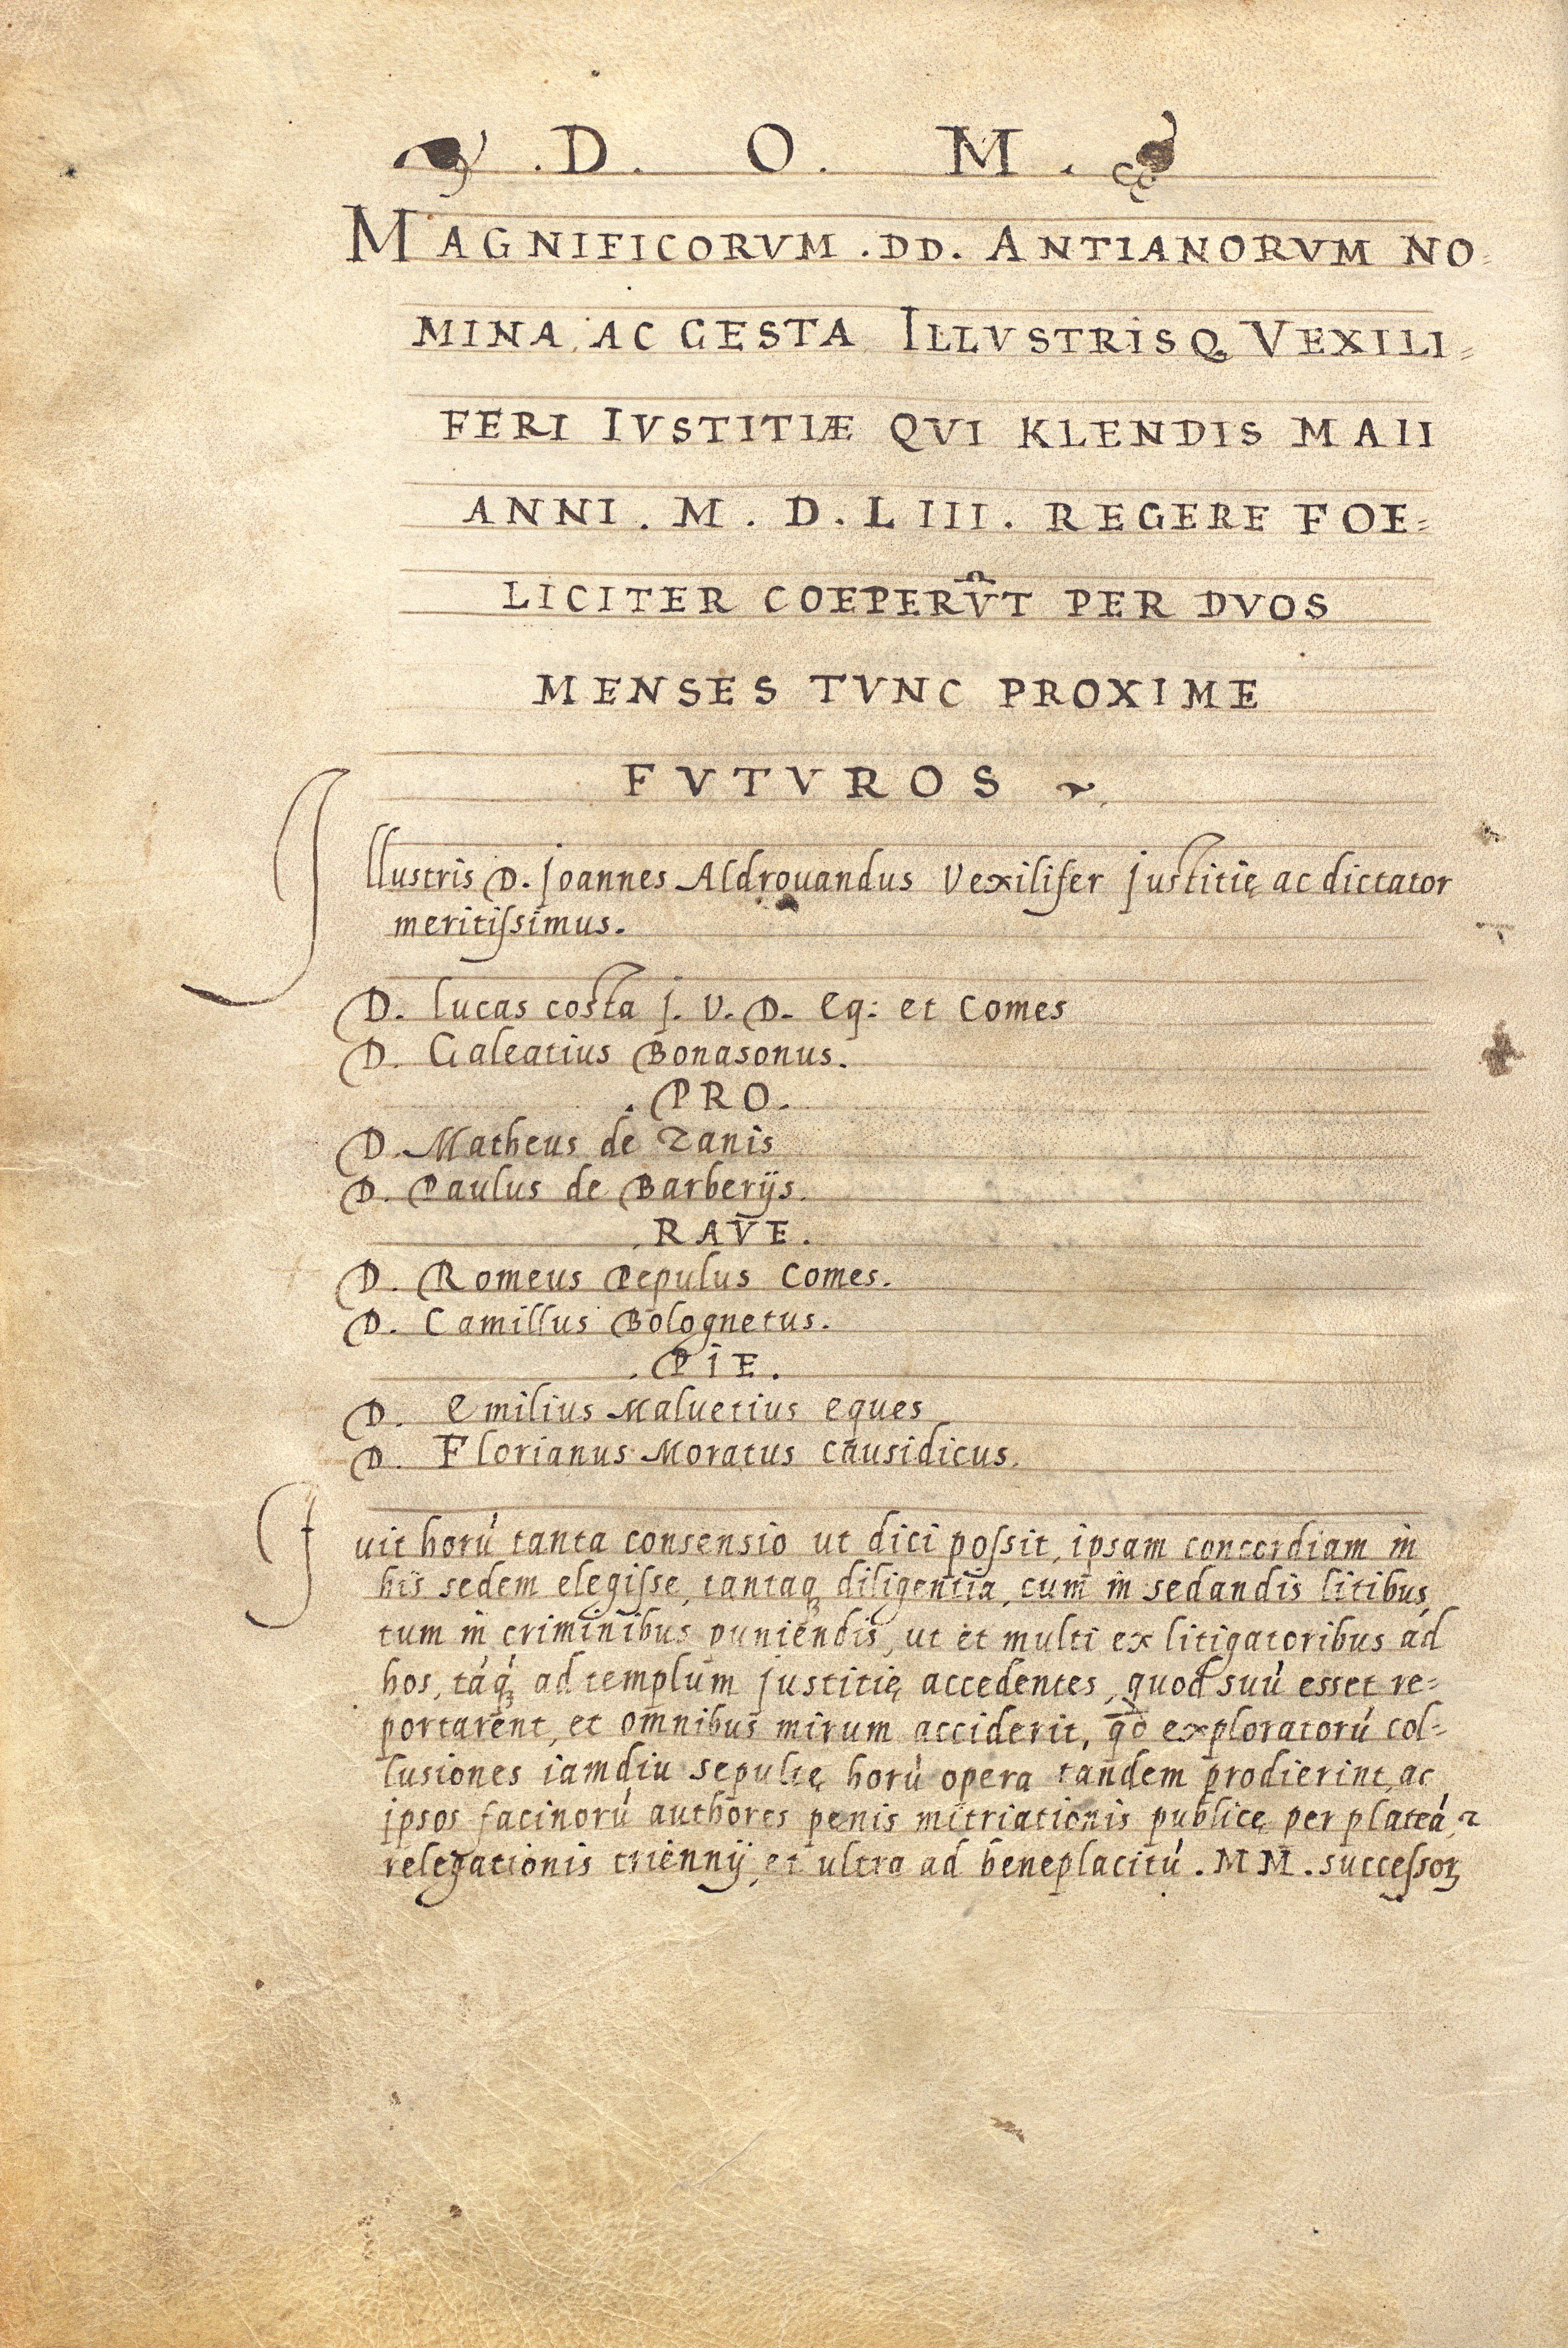 .D. O. M.
MAGNIFICORVM .DD. ANTIANORVM NO=
MINA AC GESTA ILLVSTRISQ VEXILI=
FERI IVSTITIÆ QVI KLENDIS MAII
ANNI . M . D . L III . REGERE FOE=
LICITER COEPERV̑T PER DVOS
MENSES TVNC PROXIME
FVTVROS
Illustris D. Joannes Aldrouandus Vexilifer Justitię ac dictator
meritiſsimus.
D. Lucas costa J. V. D. Eq: et Comes
D. Galeatius Bonasonus.
. PRO.
D. Matheus de Zanis
D. Paulus de Barberijs.
. RAVE.
D. Romeus Pepulus Comes.
D. Camillus Bolognetus.
. PIE.
D. Emilius Maluetius eques
D. Florianus Moratus causidicus.
Fuit horú tanta consensio ut dici poſsit, ipsam concordiam in
his sedem elegiſse, tantaqꝫ diligentia, cum in sedandis litibus,
tum in criminibus puniendis, ut et multi ex litigatoribus ad
hos, táqꝫ́ ad templum justitię accedentes, quod suú esset re=
portarent, et omnibus mirum acciderit, qđo exploratorú col=
lusiones iamdiu sepultę horú opera tandem prodierint, ac
ipsos facinorú authores penis mitriationis publicę per plateá, ⁊
relegationis triennij, et ultra ad beneplacitú . M M . succeſsoꝝ